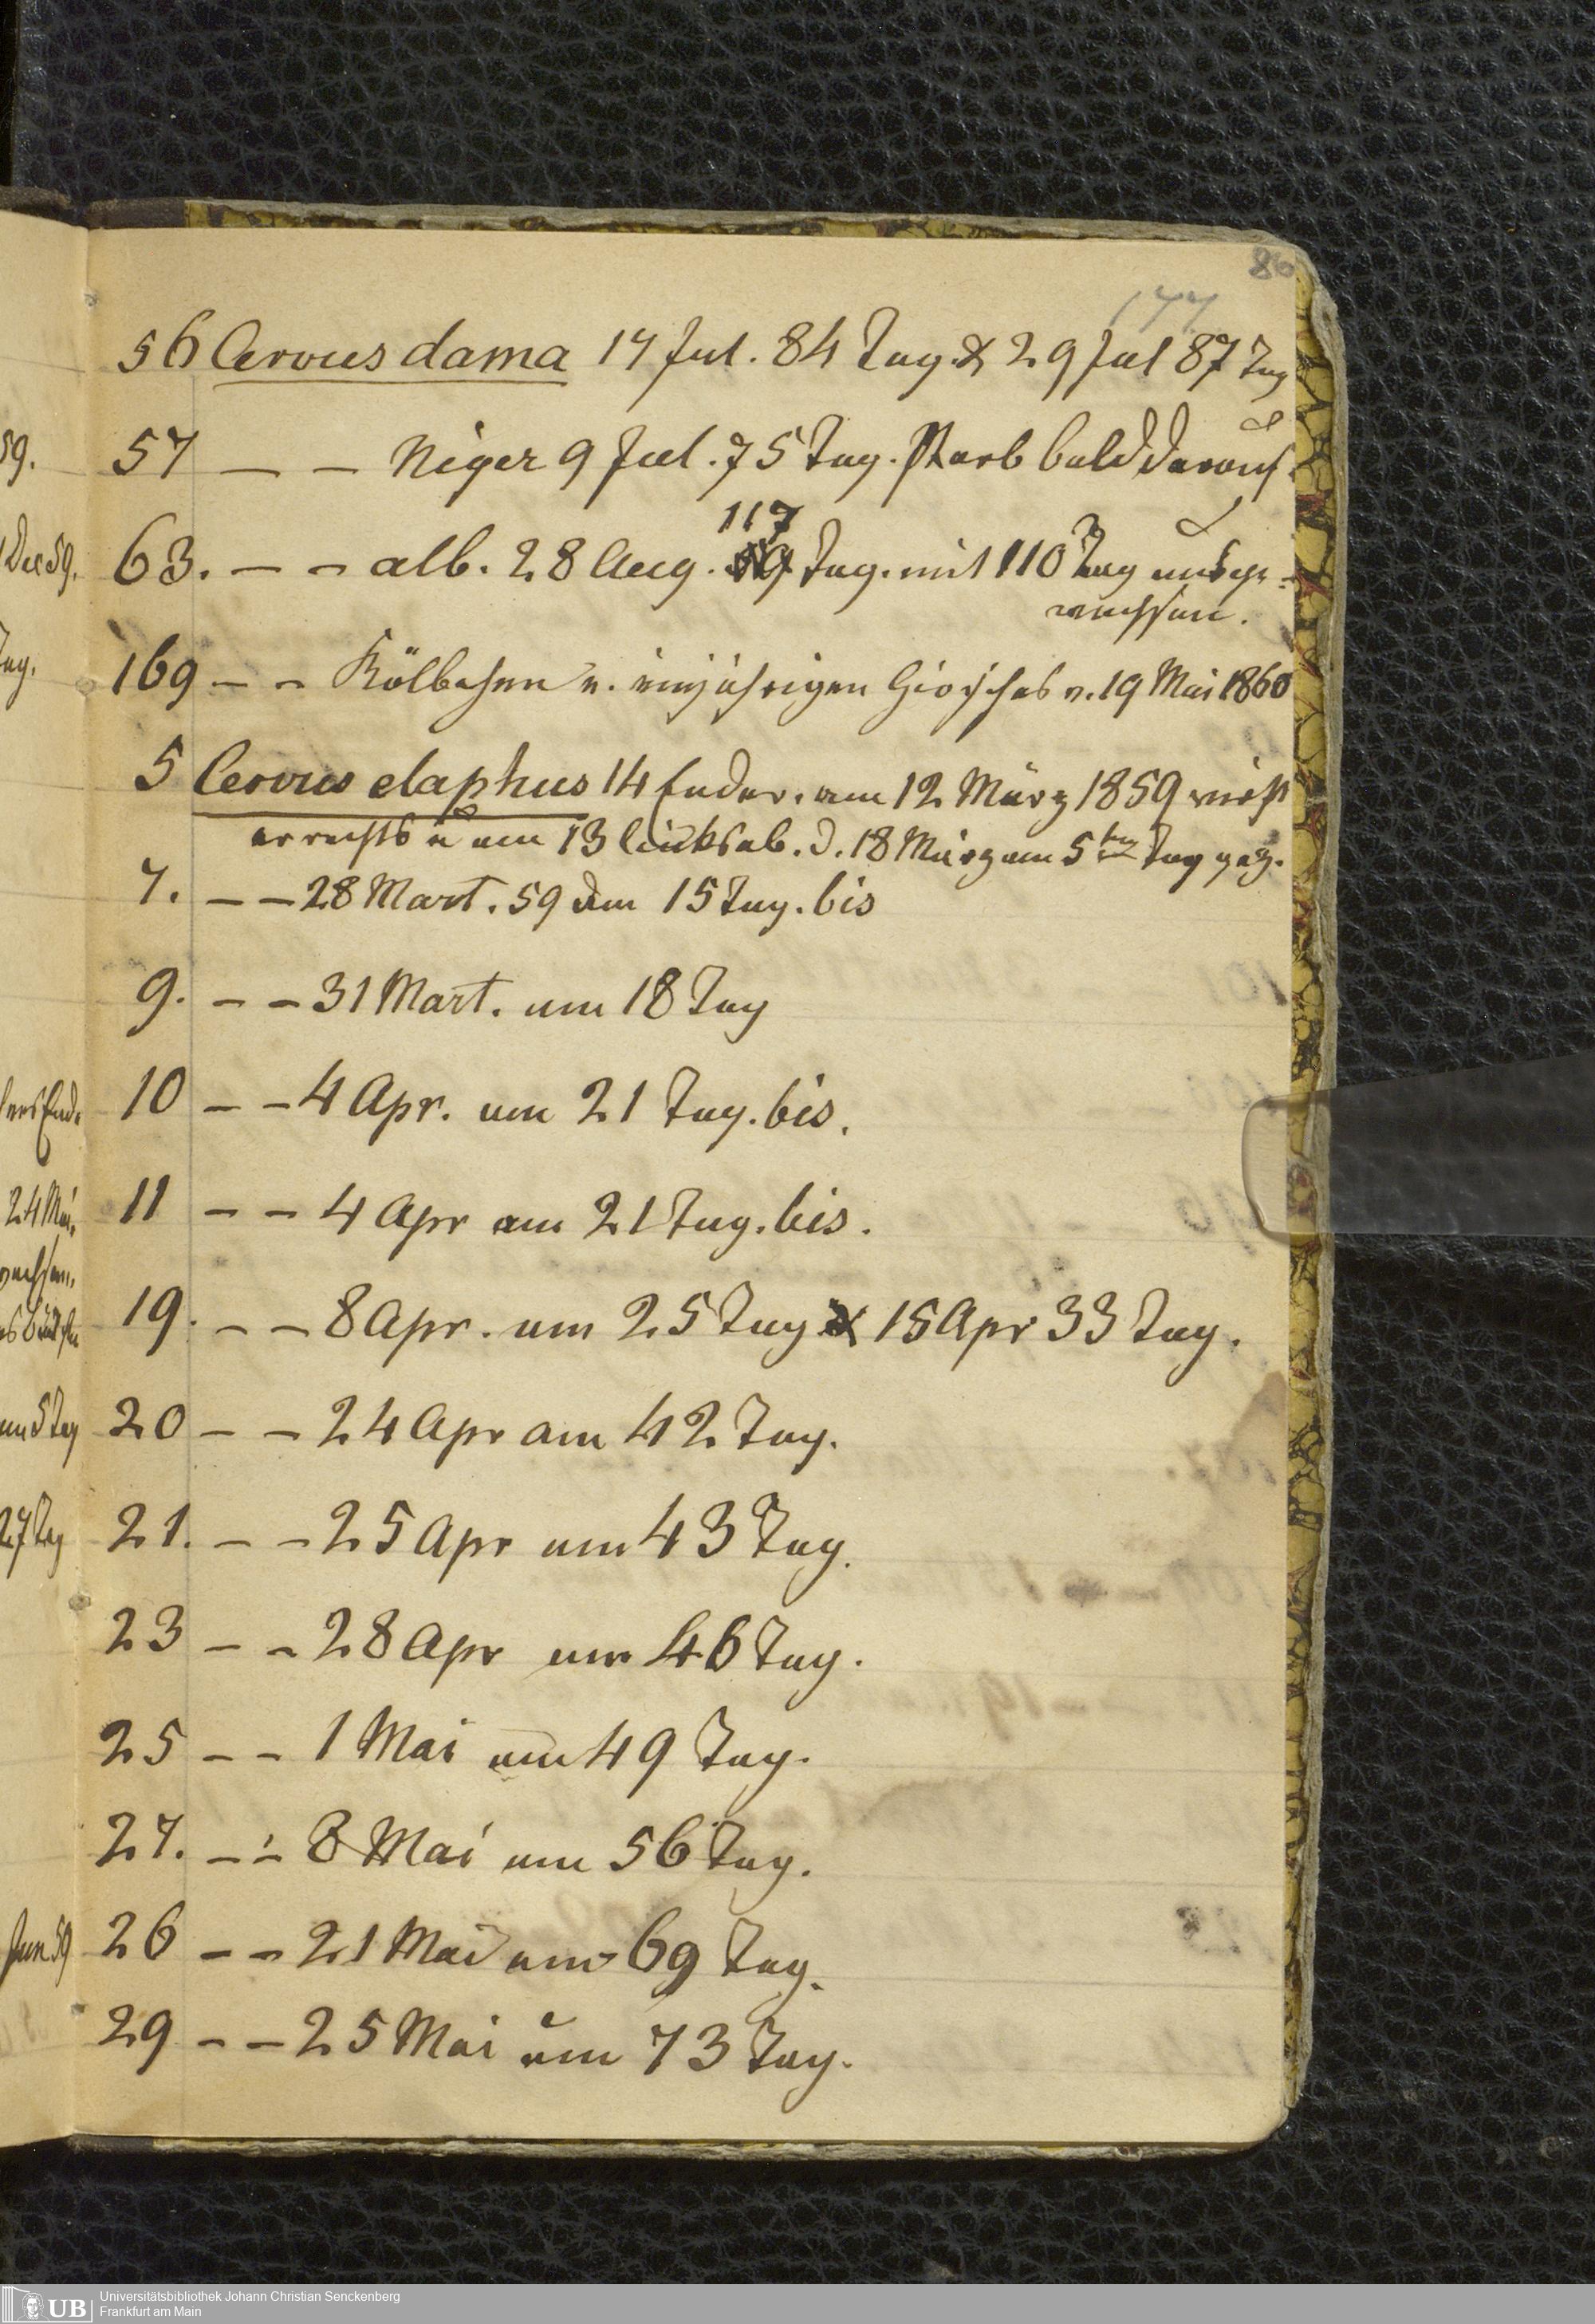 86
177
56 Cervus dama 17 Jul. 84 Tag. & 29 Jul 87 Tag
57 — — Niger 9 Jul. 75 Tag. Starb bald darauf.
117
63. — — alb. 28 Aug. Tag. mit 110 Tag ausge-
wachsen.
169 — — Kölbchen v. einjährigen Hirsches v. 19 Mai 1860
5 Cervus elaphus 14 Ender. am 12 März 1859 wirft
er rechts u am 13 links ab. d. 18 März am 5 ten Tag gez.
7. — — 28 Mart. 59 am 15 Tag. bis
9. — — 31 Mart. am 18 Tag
10 — — 4 Apr. am 21 Tag. bis.
11 — — 4 Apr am 21 Tag. bis.
19. — — 8 Apr. am 25 Tag & 15 Apr 33 Tag.
20 — — 24 Apr am 42 Tag.
21. — — 25 Apr am 43 Tag.
23 — — 28 Apr am 46 Tag.
25 — — 1 Mai am 49 Tag.
27. — — 8 Mai am 56 Tag.
26 — — 21 Mai am 69 Tag.
29 — — 25 Mai am 73 Tag.
59.
Dec 59.
Tag.
24 Mai.
am 5 Tag
27 Tag
Jun 59
UB
Universitätsbibliothek Johann Christian Senckenberg
Frankfurt am Main